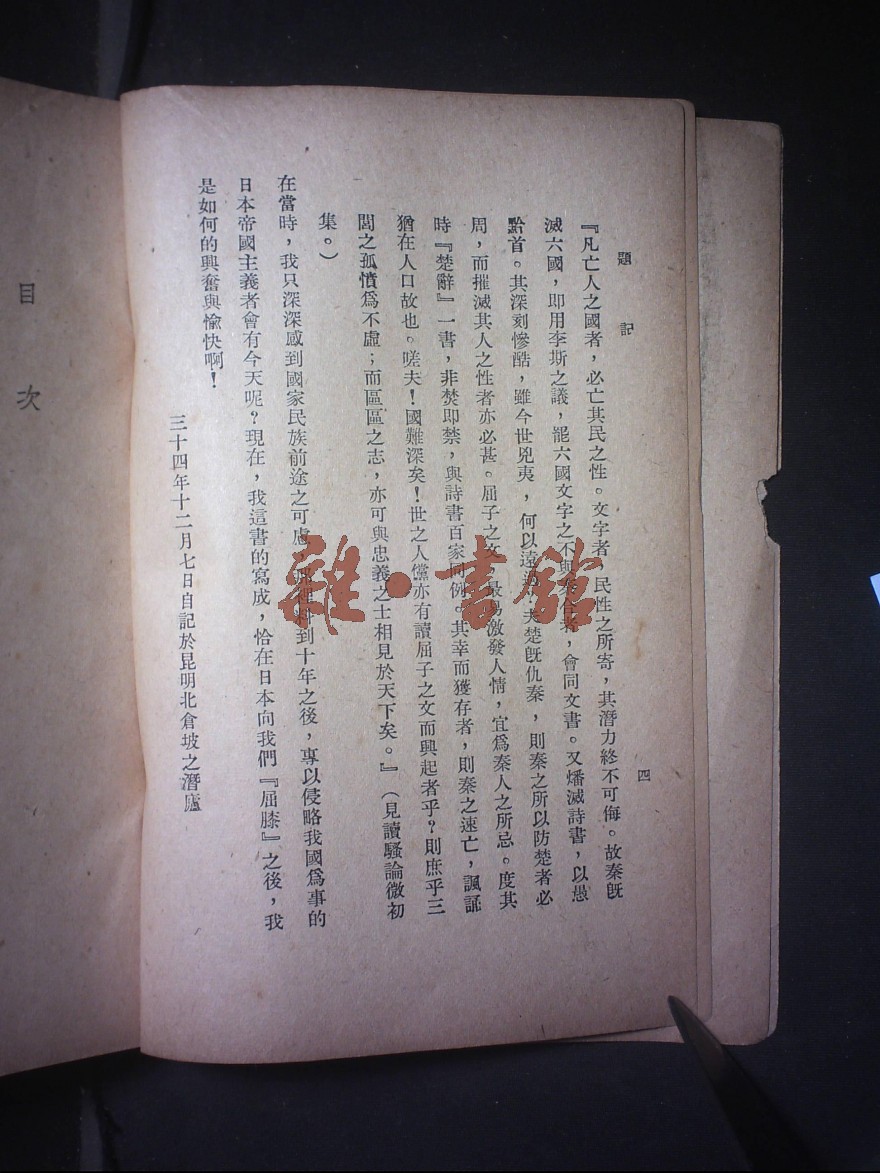 題記
四
『凡亡人之國者，必亡其民之性。文字者，民性之所寄，其潛力終不可侮。故秦旣
滅六國，即用李斯之議，罷六國文字之不與秦合者，會同文書。又燔滅詩書，以愚
黔首。其深刻慘酷，雖今世兇夷，何以遠過？夫楚旣仇秦，則秦之所以防楚者必
周，而摧滅其人之性者亦必甚。屈子之文，最易激發人情，宜爲秦人之所忌。度其
時『楚辭』一書，非焚即禁，與詩書百家同例。其幸而獲存者，則秦之速亡，諷誦
猶在人口故也。嗟夫！國難深矣！世之人儻亦有讀屈子之文而興起者乎？則庶乎三
閭之孤憤爲不虛；而區區之志，亦可與忠義之士相見於天下矣。』（見讀騷論微初
集。）
在當時，我只深深感到國家民族前途之可慮，那裡料到十年之後，專以侵略我國爲事的
日本帝國主義者會有今天呢？現在，我這書的寫成，恰在日本向我們『屈膝』之後，我
是如何的興奮與愉快啊！
三十四年十二月七日自記於昆明北倉坡之潛廬
目次
雜·書館